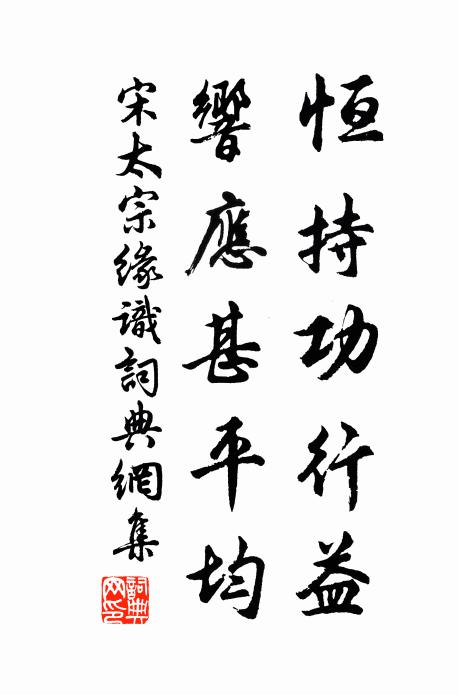 恒持功行益
響應甚平均
宋太宗緣識詞典網集
詞典网印